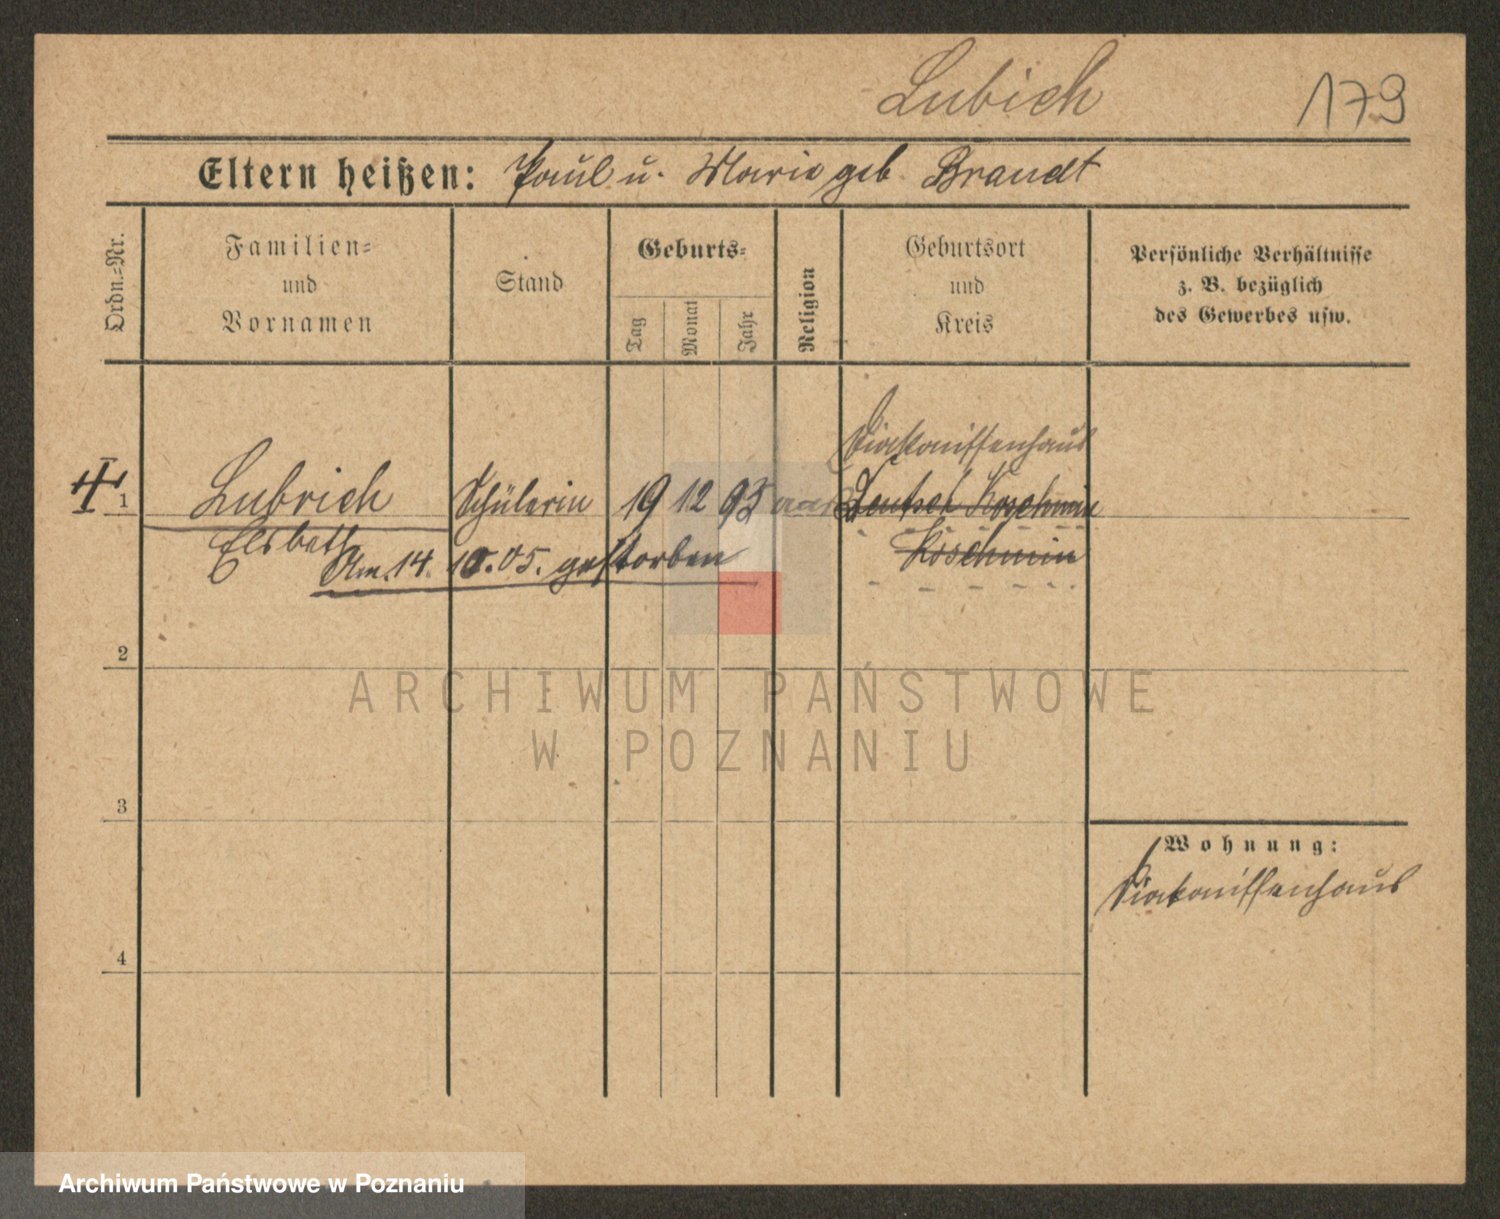 Lubich 179
Eltern heißen: Paul u. Marie geb. Brandt
Ordn.-Nr.
Familien-
und
Vornamen
Stand
Geburts-
Tag
Monat
Jahr
Religion
Geburtsort
und
Kreis
Persönliche Verhältnisse
z. B. bezüglich
des Gewerbes usw.
Diakonissenhaus
1 Lubrich Schülerin 19 12 95 Koschmin
Elsbeth Koschmin
Am. 14. 10. 05. gestorben
2
3
4
Wohnung:
Diakonissenhaus
ARCHIWUM PAŃSTWOWE
W POZNANIU
Archiwum Państwowe w Poznaniu